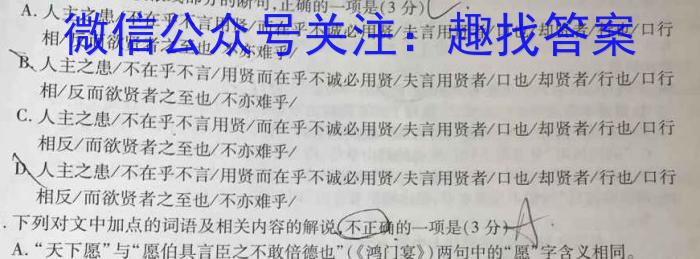 部分的断句,正确的一项是(3分)
A. 人主之
微信公众号关注：趣找答案
夫言用贤者/口也/却贤者/行也/口行
相/反而欲贤者之至也/不亦难乎/
B. 人主之患/不在乎不言/用贤而在乎不诚必用贤/夫言用贤者/口也/却贤者/行也/口行
相/反而欲贤者之至也/不亦难乎/
C. 人主之患/不在乎不言用贤/而在乎不诚必用贤/夫言用贤者/口也/却贤者/行也/口行
相反/而欲贤者之至也/不亦难乎/
D. 人主之患/不在乎不言用贤/而在乎不诚必用贤/夫言用贤者/口也/却贤者/行也/口行
相反/而欲贤者之至也/不亦难乎/
.下列对文中加点的词语及相关内容的解说,不正确的一项是(3分) A
A.“天下愿”与“愿伯具言臣之不敢倍德也”(《鸿门宴》)两句中的“愿”字含义相同。